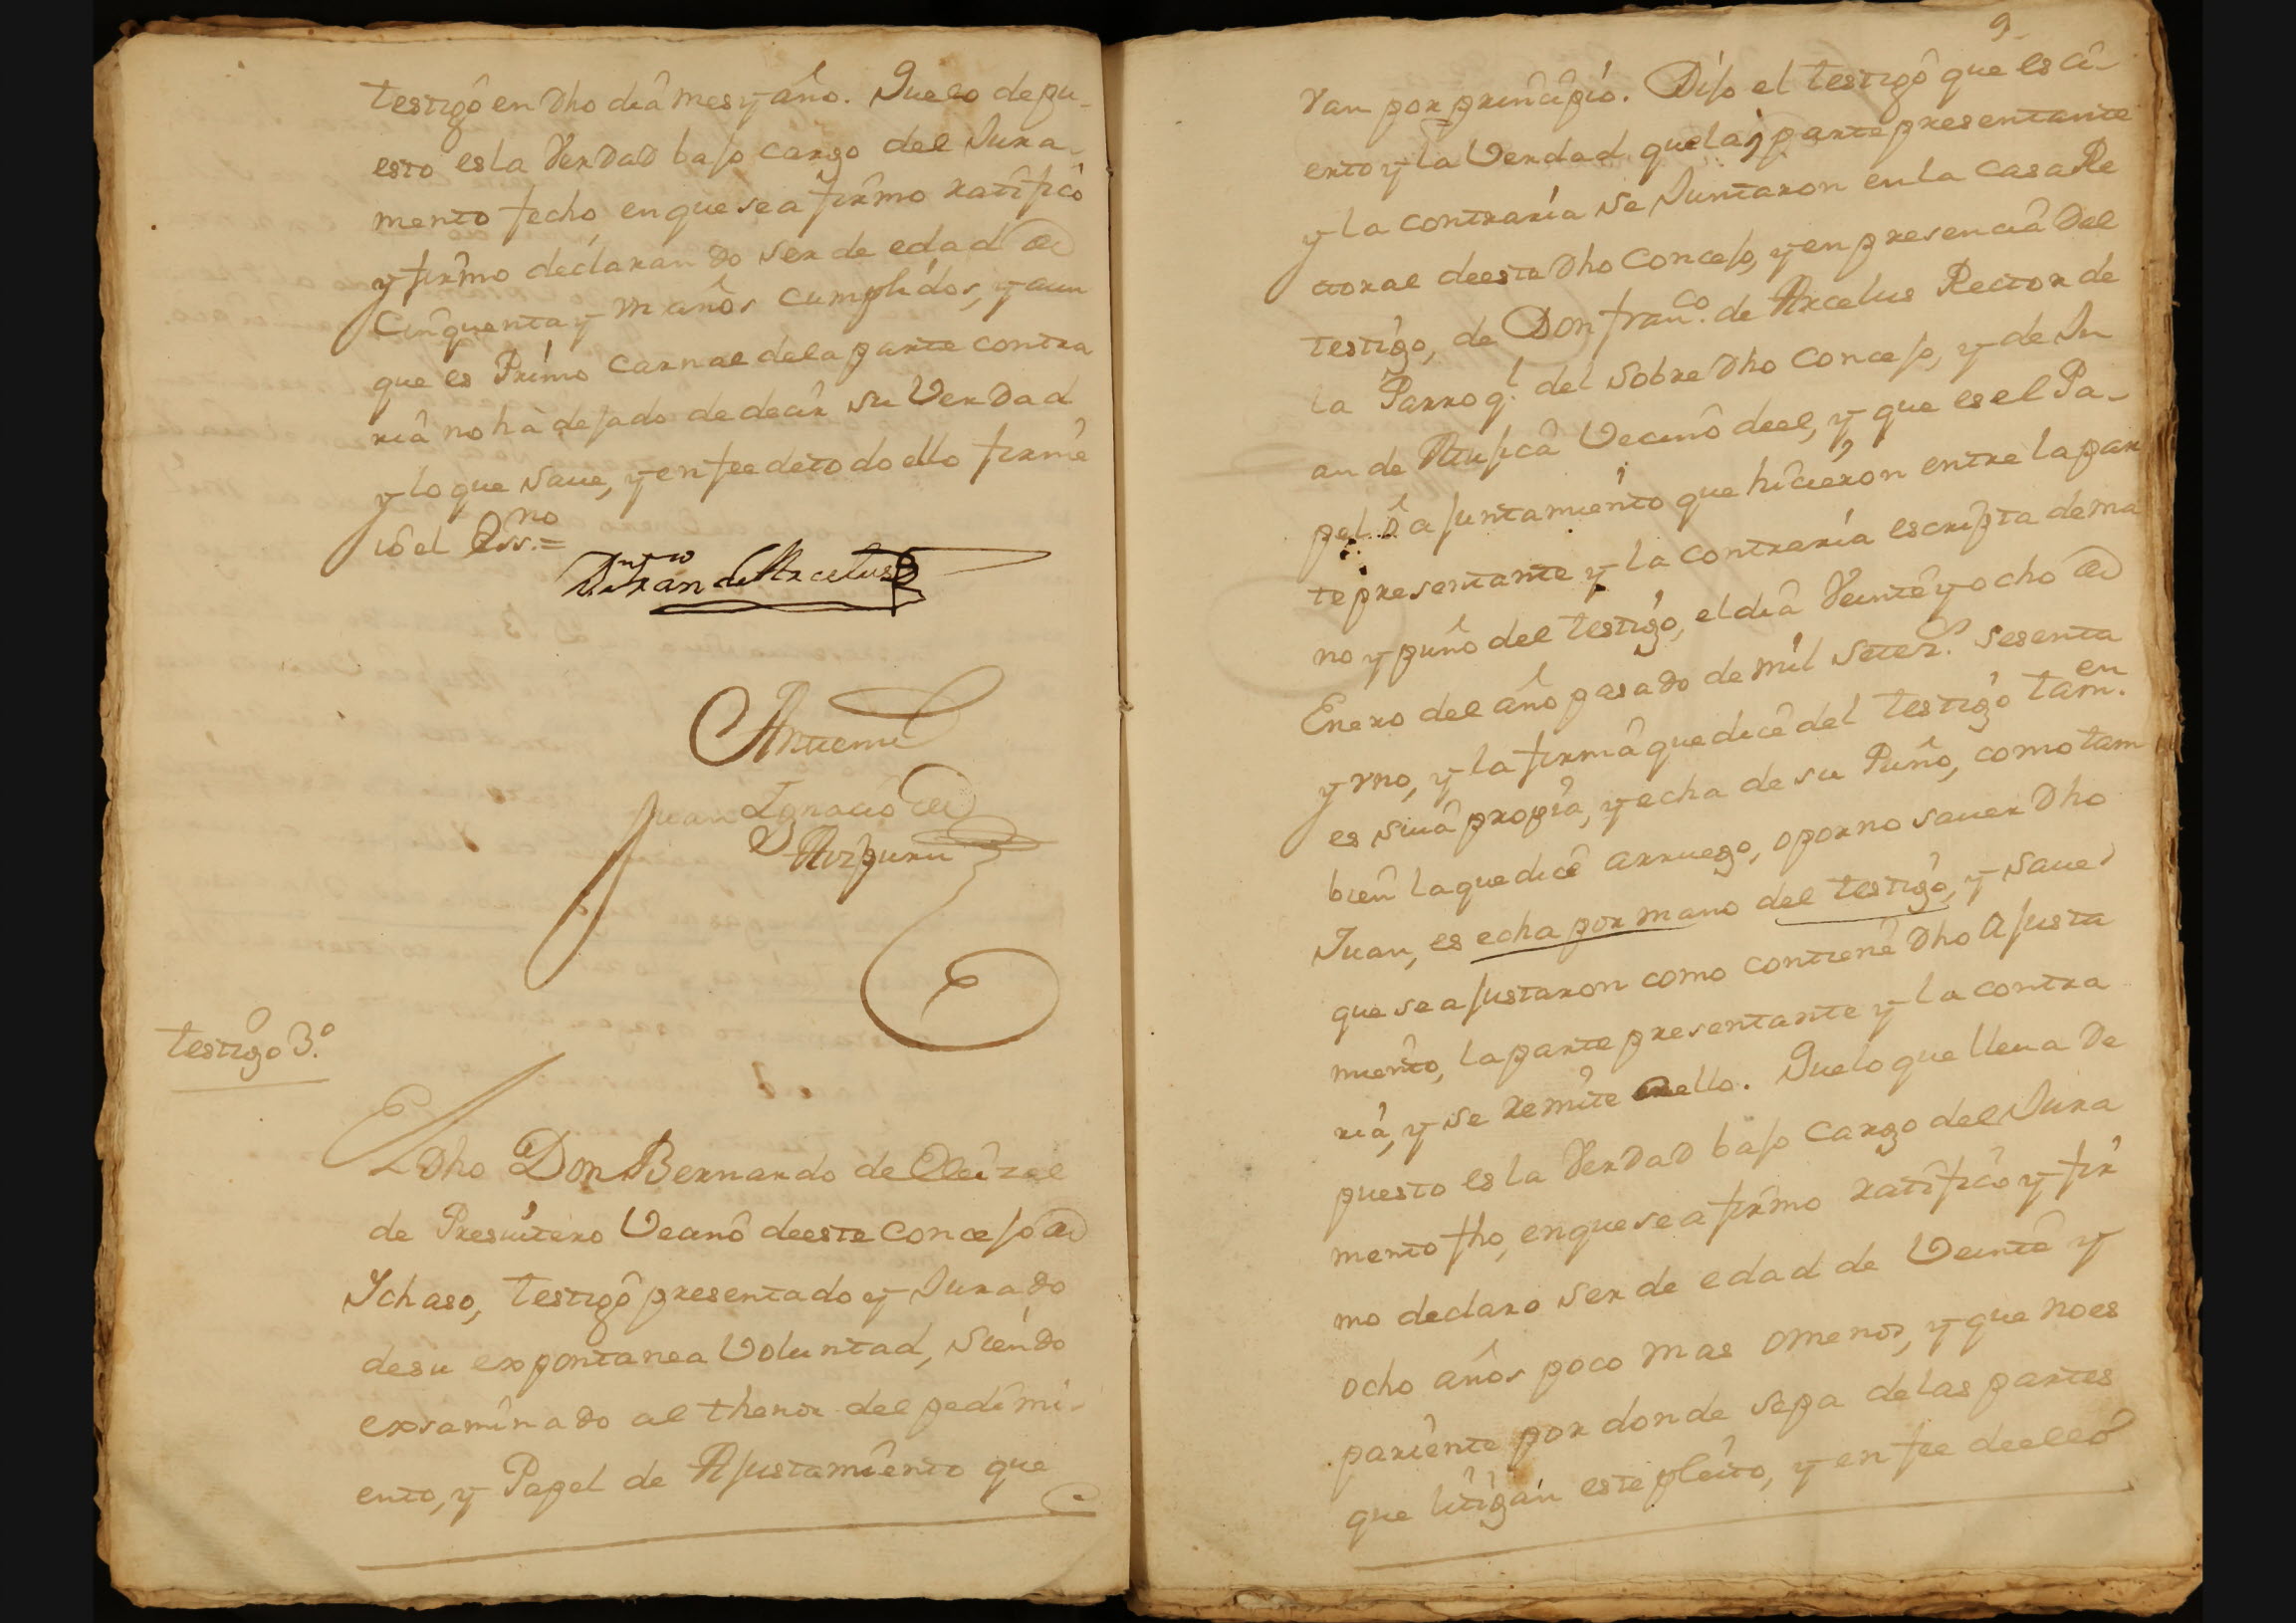 testigô en Dho diâ mes y año. Que lo depu-
esto es la Verdad bajo cargo del Jura-
mento fecho, en que se afirmo ratifico
y firmo declarando ser de edad de
Cinquenta y m años cumplidos, y aun
que es Primo carnal dela parte contra
ria no hà dejado de decir su Verdad
y lo que saue, y en fee de todo ello firmé
io el Ess.no=
Dn Fran de Arcelus
Antemi
Juan Ignacio de
Aizpuru
testigo 3.º
El Dho Don Bernardo de Oleizal
de Presuitero Vecinô de este Concejo de
Ichaso, testigô presentado y Jurado
de su expontanea Voluntad, siendo
exsaminado al thenor del pedimi-
ento, y Papel de Ajustamiento que
9
van por principio. Dijo el testigô que es ci-
erto y la Verdad que la parte presentante
y la contraria se Juntaron en la casa Re
ctoral de este Dho Concejo, y en presencia del
testigo, de Don fran.co de Arcelus Rector de
la Parroq.l del sobre Dho Concejo, y de Ju
an de Atusca Vecinô de el, y que es el Pa-
pel d ajuntamiento que hicieron entre la par
te presentante y la contraria escripta de ma
no y puño del testigo, el dia Veinte y ocho de
Enero del año pasado de mil setez.s sesenta
y vno, y la firmâ que dice del testigo tam.en
es suiâ propria, y echa de su Puño, como tam
bien la que dice arruego, o por no sauer Dho
Juan, es echa por mano del testigo, y saue
que se ajustaron como contiene Dho Ajusta
miento, la parte presentante y la contra
ria, y se remite en ello. Que lo que lleua De
puesto es la Verdad bajo cargo del Jura
mento fho, en que se afirmo ratifico y fir
mo declaro ser de edad de Veinte y
ocho años poco mas omenos, y que no es
pariente por donde sepa de las partes
que litigan este pleito, y en fee de ello